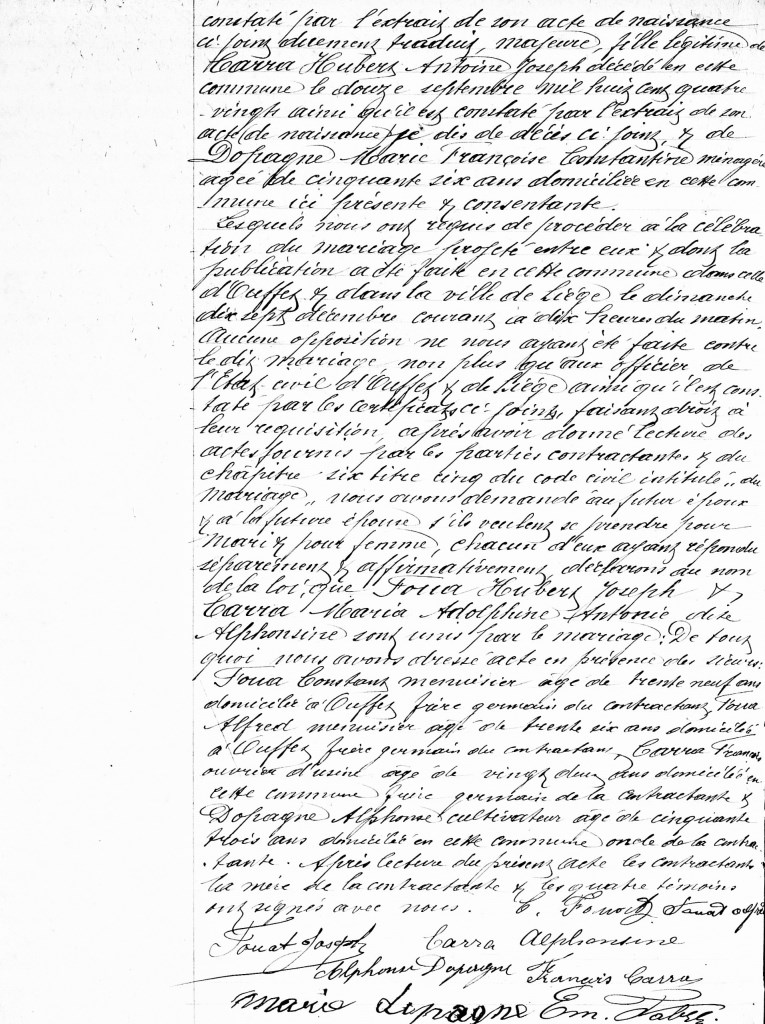 constaté par l'extrait de son acte de naissance
ci-joint duement traduit, majeure, fille légitime de
Carra Hubert Antoine Joseph décédé en cette
commune le douze septembre mil huit cent quatre
-vingts ainsi qu'il est constaté par l'extrait de son
acte (de naissance) je dis de décès ci-joint, & de
Dopagne Marie Françoise Constantine ménagère
agée de cinquante six ans domiciliée en cette com-
mune ici présente & consentante.
Lesquels nous ont requis de procéder à la célébra-
tion du mariage projeté entre eux & dont la
publication a été faite en cette commune dans celle
d'Ouffet & dans la ville de Liége le dimanche
dix sept décembre courant à dix heures du matin.
Aucune opposition ne nous ayant été faite contre
le dit mariage, non plus qu'aux officier de
l'Etat civil d'Ouffet & de Liége ainsi qu'il est cons-
taté par les certificats ci-joints, faisant droit à
leur requisition, après avoir donné lecture des
actes fournis par les parties contractantes & du
chapitre six titre cinq du code civil intitulé "du
mariage", nous avons demandé au futur époux
& à la future épouse s'ils veulent se prendre pour
mari & pour femme, chacun d'eux ayant répondu
séparement & affirmativement, déclarons au nom
de la loi, que Foua Hubert Joseph &
Carra Maria Adolphine Antonie dite
Alphonsine sont unis par le mariage: De tout
quoi nous avons dressé acte en présence des sieurs:
Foua Constant menuisier âgé de trente neuf ans
domicilié à Ouffet frère germain du contractant, Foua
Alfred menuisier âgé de trente six ans domicilié
à Ouffet frère germain du contractant, Carra François
ouvrier d'usine âgé de vingt deux ans domicilié en
cette commune frère germain de la contractante &
Dopagne Alphonse cultivateur âgé de cinquante
trois ans domicilié en cette commune oncle de la contrac-
-tante. Après lecture du présent acte les contractants
la mère de la contractante & les quatre témoins
ont signés avec nous. C. Fouat Fouat Alfred
Fouat Joseph Carra Alphonsine
Alphonse Dopagne François Carra
Marie Dopagne Em.